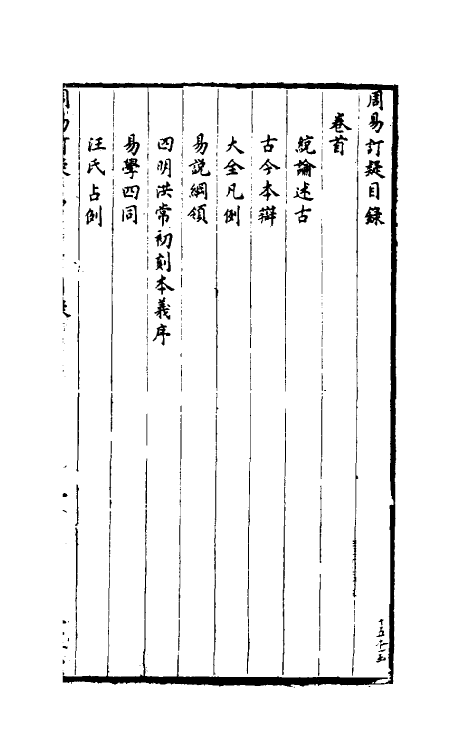 周易訂疑目錄
卷首
統論述古
古今本辯
大全凡例
易說綱領
四明洪常初刻本義序
易學四同
汪氏占例